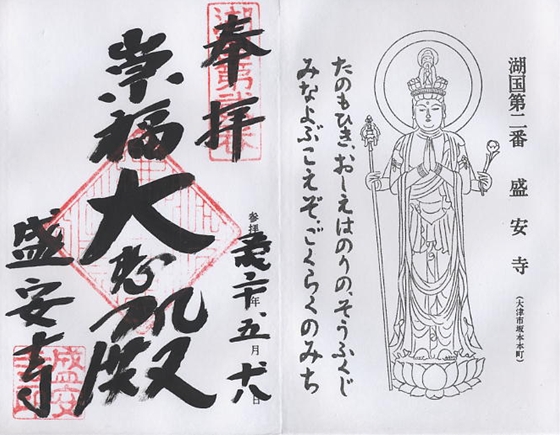 湖国第二番 盛安寺
(大津市坂本本町)
たのもひき、おしえはのりの、そうふくじ
みなよぶこえぞ、ごくらくのみち
奉拝
崇福
大悲殿
盛安寺
参拝 年 五月 日
盛安